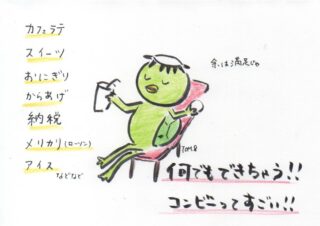 カフェラテ
スイーツ
おにぎり
からあげ
納税
メリカリ(ローソン)
アイス
などなど
余は満足じゃ
何でもできちゃう!!
コンビニってすごい!!